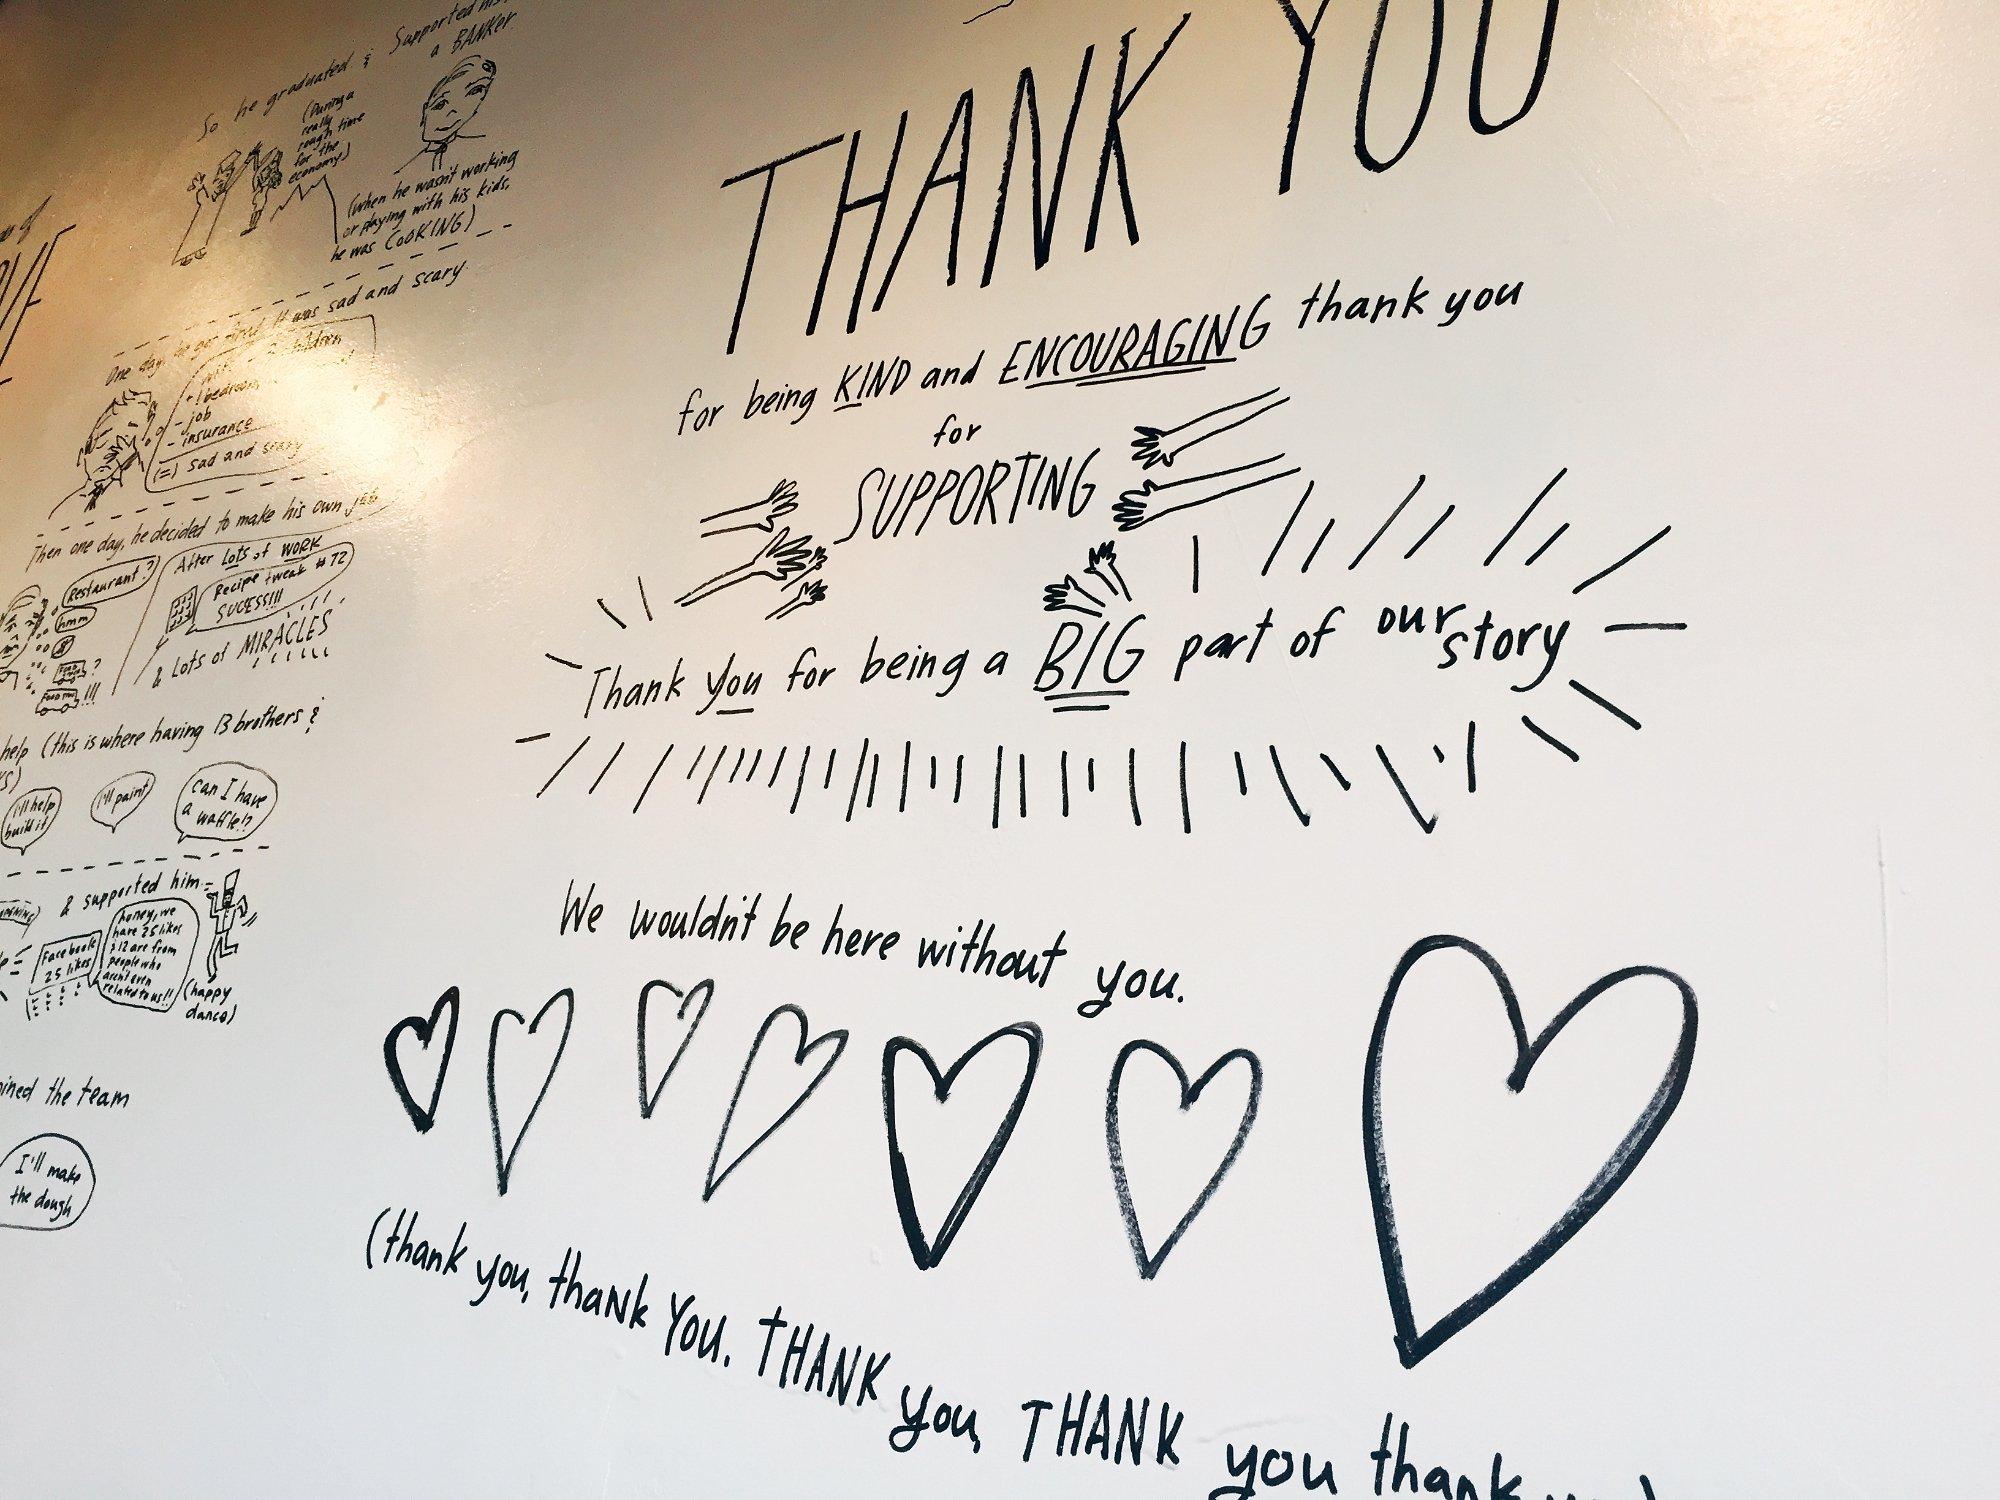 So he graduated & Supported his
a BANKer
(During a
really
rough time
for the
economy)
(when he wasn't working
or playing with his kids,
he was COOKING)
One day, he got fired. It was sad and scary
job
- insurance
(=) sad and scary
Then one day, he decided to make his own job
Restaurant?
hmm
?
!!!
After LOTS of WORK
Recipe tweak #72
SUCESS!!!
& Lots of MIRACLES
help (this is where having 13 brothers &
I'll help
build it
I'll paint
Can I have
a waffle!?
& supported him
Facebook
25 likes
honey, we
have 25 likes
& 12 are from
people who
aren't even
related to us!!
(happy
dance)
joined the team
I'll make
the dough
THANK YOU
for being KIND and ENCOURAGING thank you
for
SUPPORTING
Thank you for being a BIG part of our story
We wouldn't be here without you.
(thank you, thank You. THANK you, THANK you thank